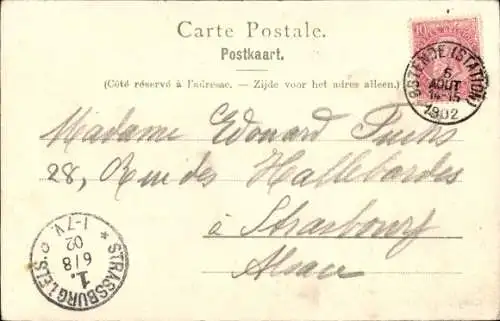 Carte Postale.
Postkaart.
(Côté réservé à l'adresse. — Zijde voor het adres alleen.)
10
OSTENDE (STATION)
5
AOUT
14-15
1902
Madame Edouard Fuchs
28, Rue des Hallebardes
à Strasbourg
Alsace
STRASSBURG (ELS.)
1.
6/8
02
1-7V.